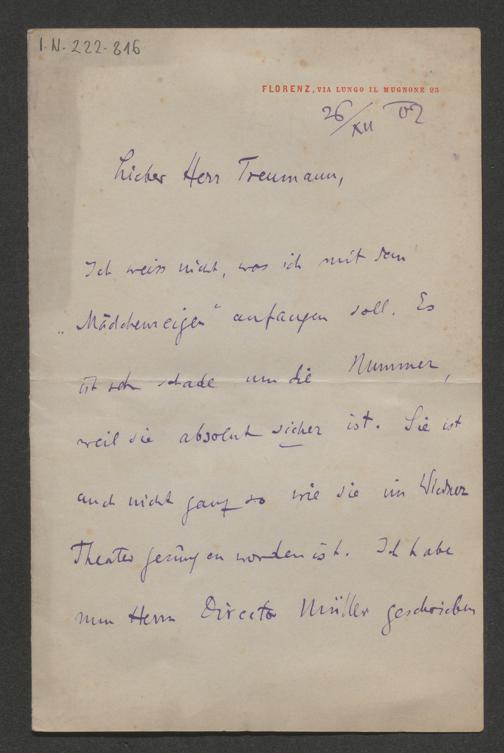 I.N. 222.816
FLORENZ, VIA LUNGO IL MUGNONE 23
26/XII 02
Lieber Herr Treumann,
Ich weiss nicht, was ich mit dem
„Mädchenreigen“ anfangen soll. Es
ist sehr schade um die Nummer,
weil sie absolut sicher ist. Sie ist
auch nicht ganz so wie sie im Wiedner
Theater gesungen worden ist. Ich habe
nun Herrn Director Müller geschrieben